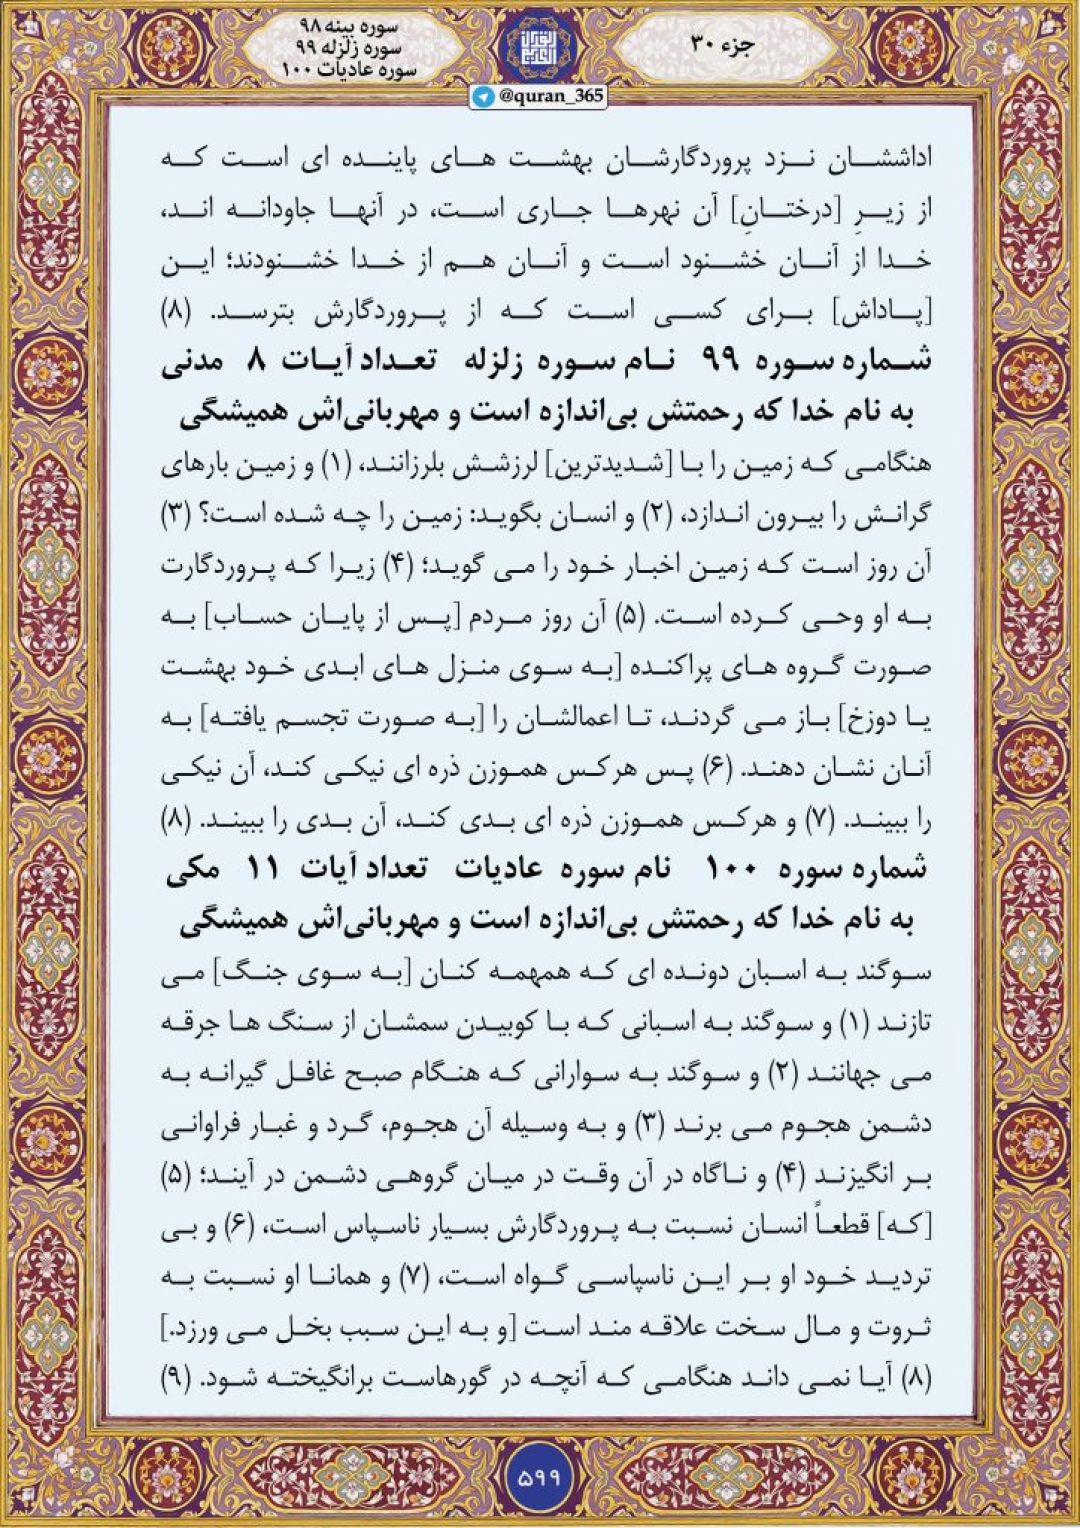 جزء ۳۰
سوره بینه ۹۸
سوره زلزله ۹۹
سوره عادیات ۱۰۰
@quran_365
اداششان نزد پروردگارشان بهشت های پاینده ای است که
از زیرِ [درختانِ] آن نهرها جاری است، در آنها جاودانه اند،
خدا از آنان خشنود است و آنان هم از خدا خشنودند؛ این
[پاداش] برای کسی است که از پروردگارش بترسد. (۸)
شماره سوره ۹۹ نام سوره زلزله تعداد آیات ۸ مدنی
به نام خدا که رحمتش بی‌اندازه است و مهربانی‌اش همیشگی
هنگامی که زمین را با [شدیدترین] لرزشش بلرزانند، (۱) و زمین بارهای
گرانش را بیرون اندازد، (۲) و انسان بگوید: زمین را چه شده است؟ (۳)
آن روز است که زمین اخبار خود را می گوید؛ (۴) زیرا که پروردگارت
به او وحی کرده است. (۵) آن روز مردم [پس از پایان حساب] به
صورت گروه های پراکنده [به سوی منزل های ابدی خود بهشت
یا دوزخ] باز می گردند، تا اعمالشان را [به صورت تجسم یافته] به
آنان نشان دهند. (۶) پس هرکس هموزن ذره ای نیکی کند، آن نیکی
را ببیند. (۷) و هرکس هموزن ذره ای بدی کند، آن بدی را ببیند. (۸)
شماره سوره ۱۰۰ نام سوره عادیات تعداد آیات ۱۱ مکی
به نام خدا که رحمتش بی‌اندازه است و مهربانی‌اش همیشگی
سوگند به اسبان دونده ای که همهمه کنان [به سوی جنگ] می
تازند (۱) و سوگند به اسبانی که با کوبیدن سمشان از سنگ ها جرقه
می جهانند (۲) و سوگند به سوارانی که هنگام صبح غافل گیرانه به
دشمن هجوم می برند (۳) و به وسیله آن هجوم، گرد و غبار فراوانی
بر انگیزند (۴) و ناگاه در آن وقت در میان گروهی دشمن در آیند؛ (۵)
[که] قطعاً انسان نسبت به پروردگارش بسیار ناسپاس است، (۶) و بی
تردید خود او بر این ناسپاسی گواه است، (۷) و همانا او نسبت به
ثروت و مال سخت علاقه مند است [و به این سبب بخل می ورزد.]
(۸) آیا نمی داند هنگامی که آنچه در گورهاست برانگیخته شود. (۹)
۵۹۹